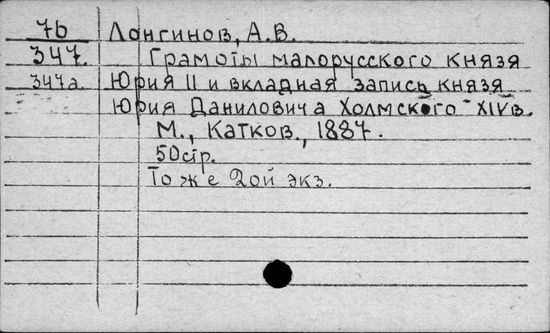 7b Лонгинов, А.В.
347. Грамоты малорусского князя
347а. Юрия II и вкладная запись князя
Юрия Даниловича Холмского XIV в.
М., Катков, 1887.
50 стр.
То же 2ой экз.